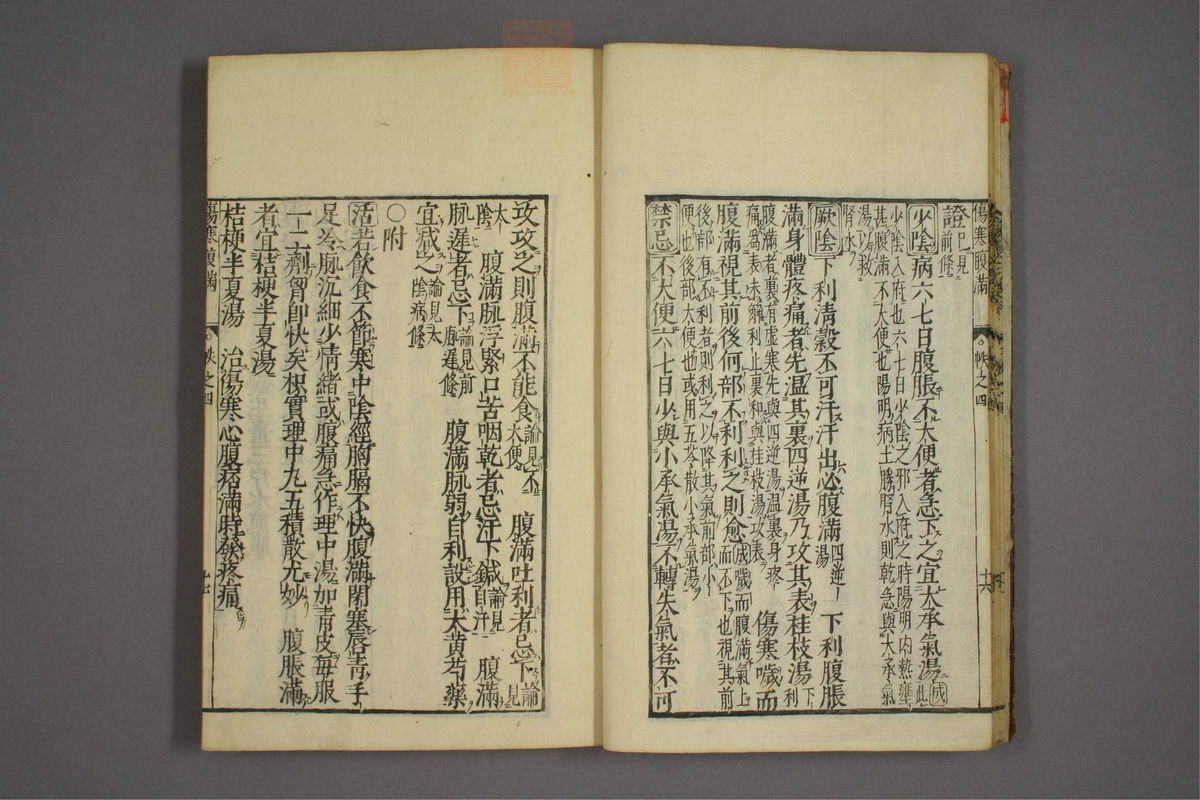 傷寒腹滿 帙之四 十六
證已見前條
少陰病六七日腹脹不大便者急下之宜大承氣湯成此
少陰入府也六七日少陰之邪入府之時陽明内熱壅
甚腹滿不大便也陽明病土勝腎水則乾急與大承氣
湯以救
腎水
厥陰下利清穀不可汗汗出必腹滿四逆湯 下利腹脹
滿身體疼痛者先温其裏四逆湯乃攻其表桂枝湯下利
腹滿者裏有虚寒先與四逆湯温裏身疼
痛爲表未解利止裏和與桂枝湯攻表 傷寒噦而
腹滿視其前後何部不利利之則愈成噦而腹滿氣上而不下也視其前
後部有不利者則利之以降其氣前部小
便也後部大便也或用五苓散小承氣湯
禁忌不大便六七日少與小承氣湯不轉失氣者不可
攻攻之則腹滿不能食論見不大便 腹滿吐利者忌下論見
太陰 腹滿脉浮緊口苦咽乾者忌汗下鍼論見自汗 腹滿
脉遲者忌下論見前脉遲條 腹滿脉弱自利設用大黄芍藥
宜减之論見太陰病條
○附
活若飲食不節寒中陰經胸膈不快腹滿閉塞唇青手
足冷脉沉細少情緒或腹痛急作理中湯加青皮每服
一二劑胷即快矣枳實理中丸五積散尤妙 腹脹滿
者宜桔梗半夏湯
桔梗半夏湯 治傷寒心腹痞滿時發疼痛
傷寒腹滿 帙之四 十七